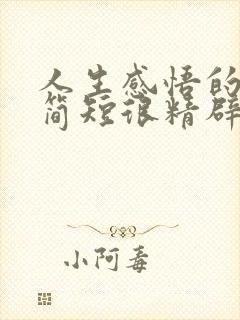 人生感悟的
简短很精辟
小阿毒